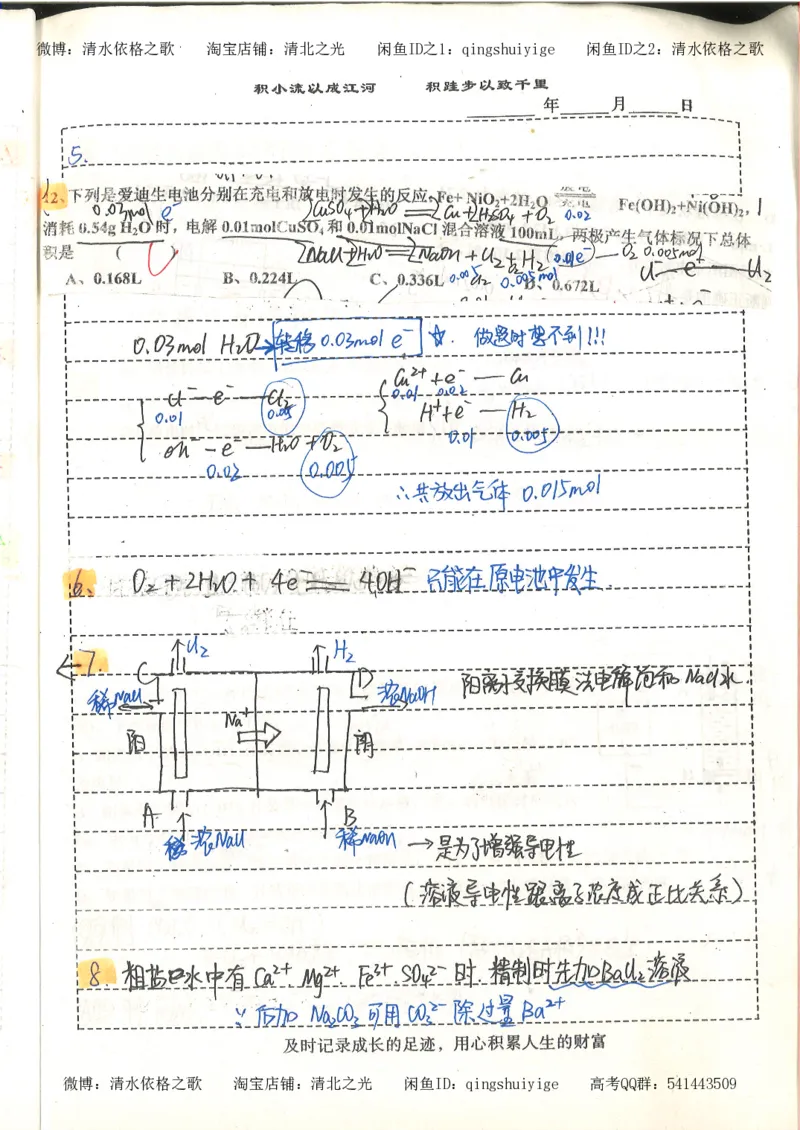 微博：清水依格之歌 淘宝店铺：清北之光 闲鱼ID之1：qingshuiyige 闲鱼ID之2：清水依格之歌
积小流以成江河 积跬步以致千里
年 月 日
5.
12、下列是爱迪生电池分别在充电和放电时发生的反应：Fe+ NiO₂+2H₂O 放电 充电 Fe(OH)₂+Ni(OH)₂，
0.03mol e⁻ CuSO₄+H₂O == Cu+H₂SO₄+O₂ 0.02
消耗 0.54g H₂O 时，电解 0.01molCuSO₄ 和 0.01molNaCl 混合溶液 100mL，两极产生气体标况下总体
积是（ ） 2NaCl+H₂O == 2NaOH+Cl₂+H₂ (0.01e⁻) — O₂ 0.005mol
Cl⁻ — e⁻ — Cl₂
A、0.168L B、0.224L C、0.336L 0.005 Cl₂ 0.005mol D、0.672L
0.03mol H₂O→转移 0.03mol e⁻ ☆. 做题时想不到!!!
Cl⁻ — e⁻ — Cl₂
0.01 0.05
Cu²⁺+e⁻ — Cu
0.01 0.02
H⁺+e⁻ — H₂
0.01 0.005
OH⁻ — e⁻ — H₂O + O₂
0.02 0.005
∴共放出气体 0.015mol
6、 O₂+2H₂O+4e⁻ == 4OH⁻ 只能在原电池中发生.
←7. Cl₂ H₂
C D
稀NaCl 浓NaOH 阳离子交换膜法电解饱和NaCl水.
Na⁺
阳 阴
A B
浓NaCl 稀NaOH →是为了增强导电性
（溶液导电性跟离子浓度成正比关系）
8. 粗盐水中有Ca²⁺、Mg²⁺、Fe³⁺、SO₄²⁻时，精制时先加BaCl₂溶液
∵后加 Na₂CO₃ 可用CO₃²⁻除过量Ba²⁺
及时记录成长的足迹，用心积累人生的财富
微博：清水依格之歌 淘宝店铺：清北之光 闲鱼ID：qingshuiyige 高考QQ群：541443509